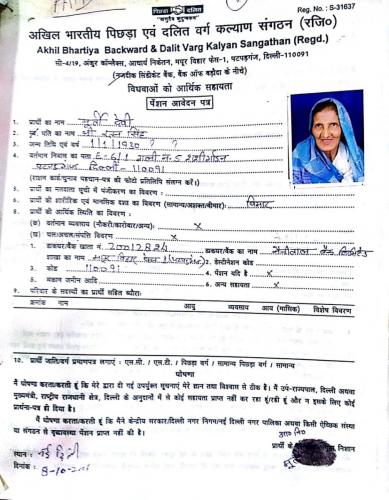 पिछड़ा दलित
Reg. No. : S-31637
अखिल भारतीय पिछड़ा एवं दलित वर्ग कल्याण संगठन (रजि०)
Akhil Bhartiya Backward & Dalit Varg Kalyan Sangathan (Regd.)
सी-4/19, अंकुर कॉम्पलैक्स, आचार्य निकेतन, मयूर विहार फेस-1, पटपड़गंज, दिल्ली-110091
(नजदीक सिंडीकेट बैंक, बैंक ऑफ बड़ौदा के नीचे)
विधवाओं को आर्थिक सहायता
पेंशन आवेदन पत्र
1. प्रार्थी का नाम मूर्ती देवी
2. पति का नाम श्री सिंह
3. जन्म तिथि एवं वर्ष 1/1/1930
4. वर्तमान निवास का पता E-6/1 गली नं. 5 शशीगार्डन
पटपड़गंज दिल्ली-110091
(राशन कार्ड/चुनाव पहचान-पत्र की फोटो प्रतिलिपि संलग्न करें।)
5. प्रार्थी का मतदाता सूची में पंजीकरण का विवरण :
6. प्रार्थी की शारीरिक एवं मानसिक दशा का विवरण (सामान्य/अशक्त/बीमार): बिमार
7. प्रार्थी की आर्थिक स्थिति का विवरण :
(क) वर्तमान व्यवसाय (नौकरी/कारोबार/अन्य): x
(ख) चल/अचल/संपत्ति विवरण x
1. डाकघर/बैंक खाता नं. 20012824 डाकघर/बैंक का नाम नैनीताल बैंक लिमिटेड
शाखा का नाम मयूर विहार फेस 1 2. डेस्टीनेशन कोड
3. कोड 110091 4. पेंशन यदि है x
5. मकान जमीन आदि 6. अन्य सहायता x
9. परिवार के सदस्यों का प्रार्थी सहित ब्योरा:
क्रमांक नाम आयु व्यवसाय आय (मासिक) विशेष विवरण
10. प्रार्थी जाति/वर्ग प्रमाणपत्र लगाएं : एस.सी. / एस.टी. / पिछड़ा वर्ग / सामान्य पिछड़ा वर्ग / सामान्य
घोषणा
मैं घोषणा करता/करती हूं कि मेरे द्वारा दी गई उपर्युक्त सूचनाएं मेरे ज्ञान तथा विश्वास से ठीक है। मैं उप-राज्यपाल, दिल्ली अथवा
मुख्यमंत्री, राष्ट्रीय राजधानी क्षेत्र, दिल्ली के अनुदानों में से कोई सहायता प्राप्त नहीं कर रहा हूं/रही हूं और न इसके लिए कोई
प्रार्थना-पत्र ही दिया है।
मैं घोषणा करता/करती हूं कि मैंने केन्द्रीय सरकार/दिल्ली नगर निगम/नई दिल्ली नगर पालिका अथवा किसी ऐच्छिक संस्था
या संगठन से वृद्धावस्था पेंशन प्राप्त नहीं की है।
प्रार्थी के निशान
स्थान : नई दिल्ली
दिनांक :